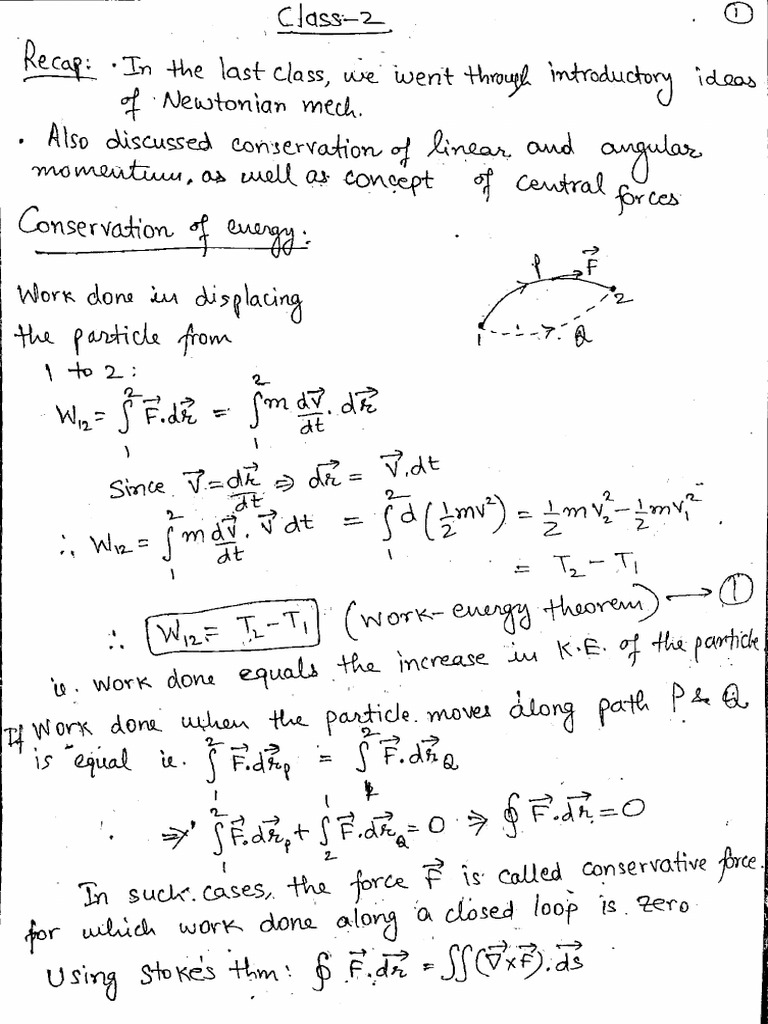 Class-2 ①
Recap: · In the last class, we went through introductory ideas
of Newtonian mech.
· Also discussed conservation of linear and angular
momentum, as well as concept of central forces
Conservation of energy:
P F⃗
1 2 Q
Work done in displacing
the particle from
1 to 2:
W₁₂ = ∫₁² F⃗.dr⃗ = ∫₁² m dv⃗/dt . dr⃗
Since v⃗ = dr⃗/dt ⇒ dr⃗ = v⃗.dt
∴ W₁₂ = ∫₁² m dv⃗/dt . v⃗ dt = ∫₁² d(½mv²) = ½mv₂² - ½mv₁²
= T₂ - T₁
∴ W₁₂ = T₂ - T₁ (work-energy theorem) → ①
ie. work done equals the increase in K.E. of the particle
If work done when the particle moves along path P & Q
is equal ie. ∫₁² F⃗.dr⃗_P = ∫₁² F⃗.dr⃗_Q
⇒ ∫₁² F⃗.dr⃗_P + ∫₂¹ F⃗.dr⃗_Q = 0 ⇒ ∮ F⃗.dr⃗ = 0
In such cases, the force F⃗ is called conservative force.
for which work done along a closed loop is zero
Using Stoke's thm: ∮ F⃗.dr⃗ = ∬(∇⃗×F⃗).ds⃗